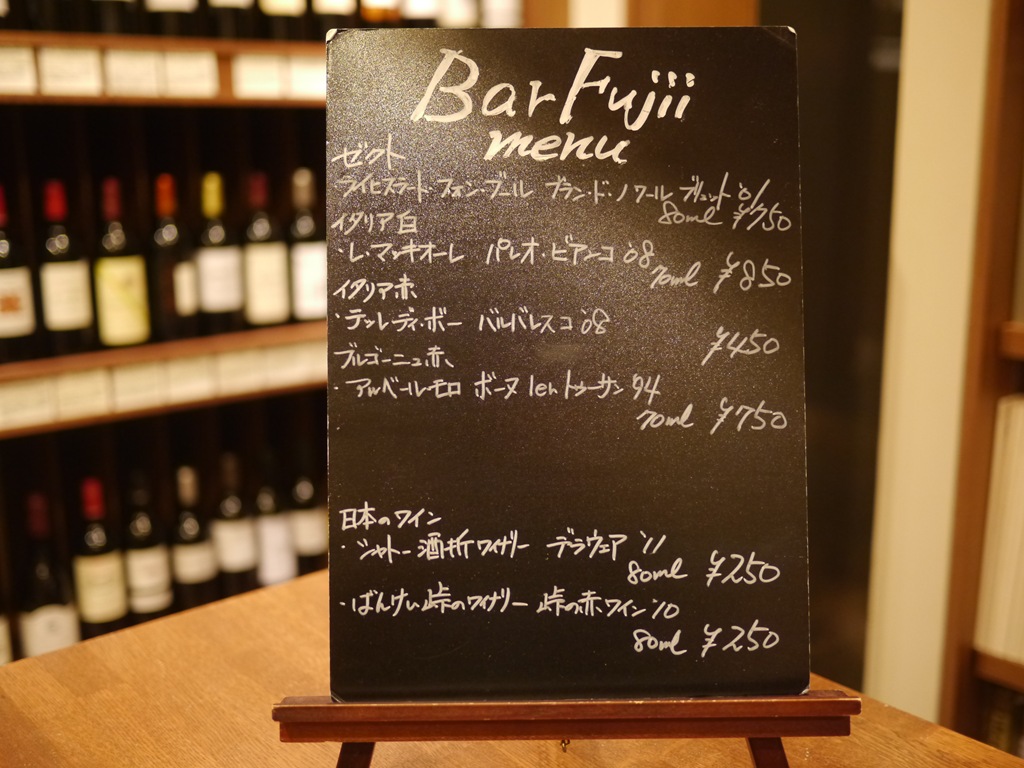 Bar Fujii
menu
ゼクト
ライヒスラート・フォン・ブール ブラン・ド・ノワール ブリュット '01
80ml ¥750
イタリア白
・レ・マッキオーレ パレオ・ビアンコ '08
70ml ¥850
イタリア赤
・テッレ・ディ・ボー バルバレスコ '08
¥450
ブルゴーニュ赤
・アルベール・モロ ボーヌ 1er トゥーサン '94
70ml ¥750
日本のワイン
・シャトー酒折ワイナリー デラウェア '11
80ml ¥250
・ばんけい峠のワイナリー 峠の赤ワイン '10
80ml ¥250